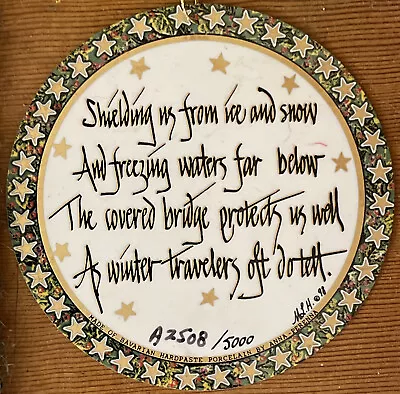 Shielding us from ice and snow
And freezing waters far below
The covered bridge protects us well
As winter travelers oft do tell.
©98
A2508/5000
MADE OF BAVARIAN HARDPASTE PORCELAIN BY ANNA-PERENNA